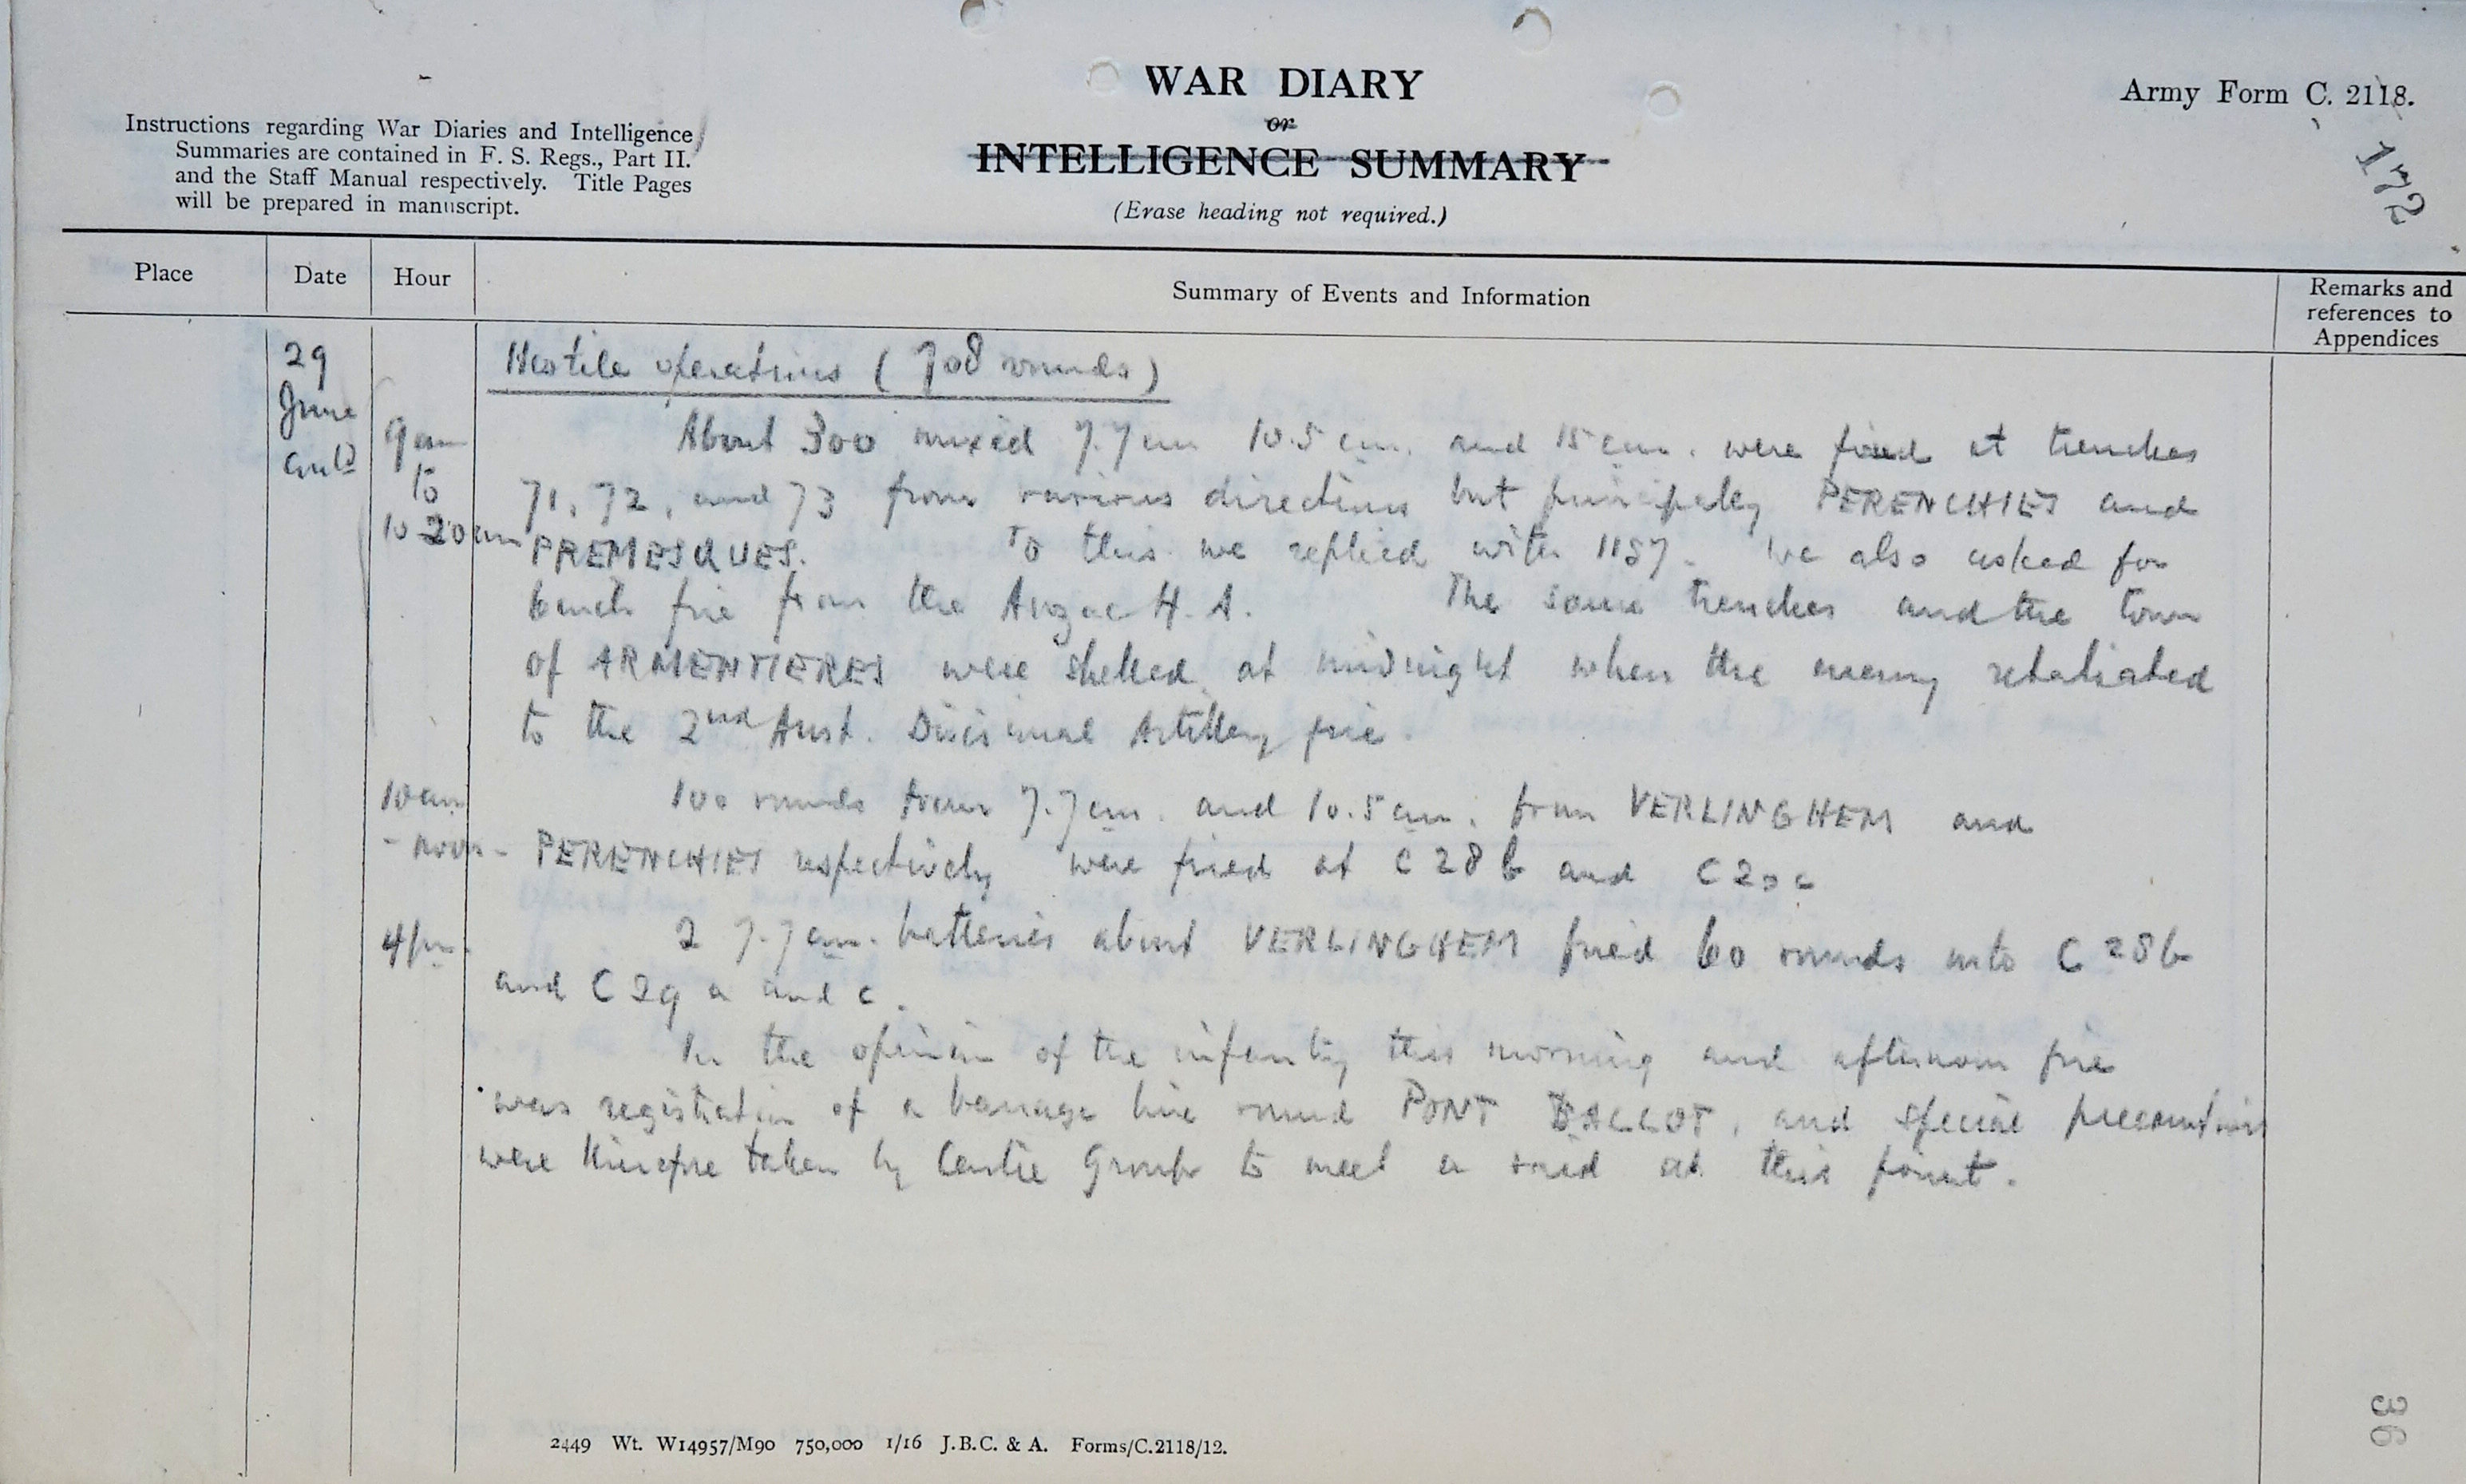 WAR DIARY
or
INTELLIGENCE SUMMARY
(Erase heading not required.)
Army Form C. 2118.
172
Instructions regarding War Diaries and Intelligence
Summaries are contained in F. S. Regs., Part II.
and the Staff Manual respectively. Title Pages
will be prepared in manuscript.
Place Date Hour Summary of Events and Information Remarks and references to Appendices
29
June
contd
Hostile operations (708 rounds)
9 am
to
10 20 am
About 300 mixed 7.7 cm 10.5 cm. and 15 cm. were fired at trenches
71, 72, and 73 from various directions but principally PERENCHIES and
PREMESQUES. To this we replied with 1157. We also asked for
6 inch fire from the Anzac H. A. The same trenches and the town
of ARMENTIERES were shelled at midnight when the enemy retaliated
to the 2nd Aust. Divisional Artillery fire.
10 am
- noon -
100 rounds from 7.7 cm. and 10.5 cm. from VERLINGHEM and
PERENCHIES respectively were fired at C 28 b and C 20 c
4 pm.
2 7.7 cm. batteries about VERLINGHEM fired 60 rounds into C 28 b
and C 29 a and c.
In the opinion of the infantry this morning and afternoon fire
was registration of a barrage line round PONT BALLOT, and special precautions
were therefore taken by Centre Group to meet a raid at this point.
36
2449 Wt. W14957/M90 750,000 1/16 J.B.C. & A. Forms/C.2118/12.